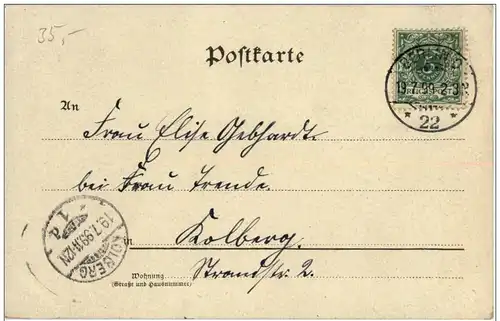 35,-
Postkarte
BERLIN
5
19.7.99.2-3
* 22 *
An
Frau Elise Gebhardt
bei Frau Trende.
in Kolberg.
Wohnung
(Straße und Hausnummer)
Strandstr. 2.
KOLBERG
19.7.99.11-12N
* 1 d